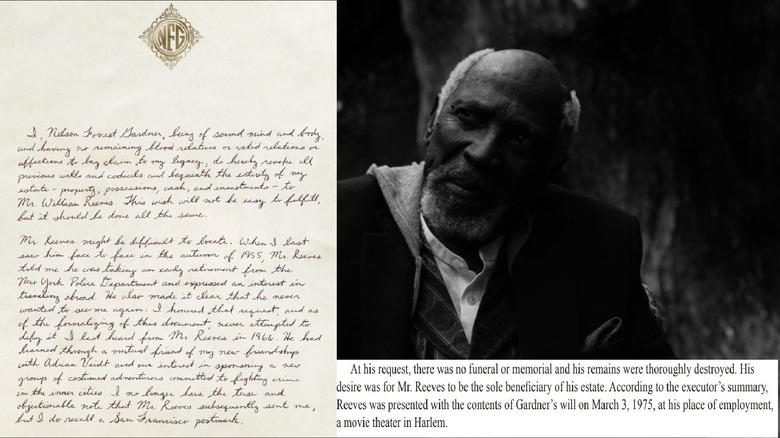 NFG
I, Nelson Forest Gardner, being of sound mind and body,
and having no remaining blood relatives or valid relations or
affections to lay claim to my legacy, do hereby revoke all
previous wills and codicils and bequeath the entirety of my
estate - property, possessions, cash, and investments - to
Mr. William Reeves. This wish will not be easy to fulfill,
but it should be done all the same.
Mr. Reeves might be difficult to locate. When I last
saw him face to face in the autumn of 1955, Mr. Reeves
told me he was taking an early retirement from the
New York Police Department and expressed an interest in
traveling abroad. He also made it clear that he never
wanted to see me again. I honored that request, and as
of the formalizing of this document, never attempted to
defy it. I last heard from Mr Reeves in 1966. He had
learned through a mutual friend of my new friendships
with Adrian Veidt and our interest in sponsoring a new
group of costumed adventurers committed to fighting crime
in the inner cities. I no longer have the terse and
objectionable note that Mr. Reeves subsequently sent me,
but I do recall a San Francisco postmark.
At his request, there was no funeral or memorial and his remains were thoroughly destroyed. His
desire was for Mr. Reeves to be the sole beneficiary of his estate. According to the executor's summary,
Reeves was presented with the contents of Gardner's will on March 3, 1975, at his place of employment,
a movie theater in Harlem.